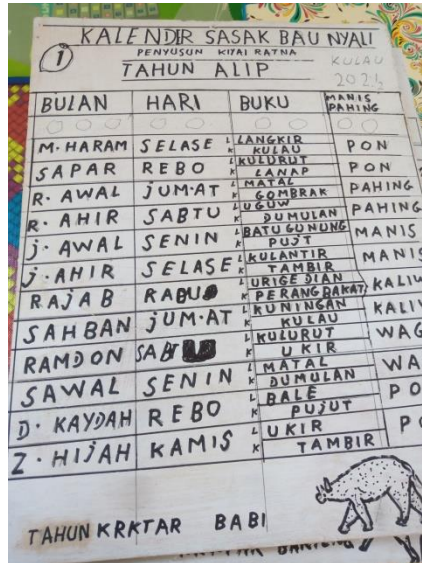 KALENDER SASAK BAU NYALI
PENYUSUN KIYAI RATNA
1
TAHUN ALIP
KULAU
BULAN HARI BUKU MANIS PAHING
M. HARAM SELASE L LANGKIR K KULAU PON
SAPAR REBO L KULURUT K LANAP PON
R. AWAL JUM.AT L MATAL K GOMBRAK PAHING
R. AHIR SABTU L UGUW K DUMULAN PAHING
J. AWAL SENIN L BATU GUNUNG K PUJT MANIS
J. AHIR SELASE L KULANTIR K TAMBIR MANIS
RAJAB RABU L URIGE DIAN K PERANG BAKAT KALIW
SAHBAN JUM.AT L KUNINGAN K KULAU KALIW
RAMDON SABTU L KULURUT K UKIR WAG
SAWAL SENIN L MATAL K DUMULAN WA
D. KAYDAH REBO L BALE K PUJUT PO
Z. HIJAH KAMIS L UKIR K TAMBIR PO
TAHUN KRKTAR BABI